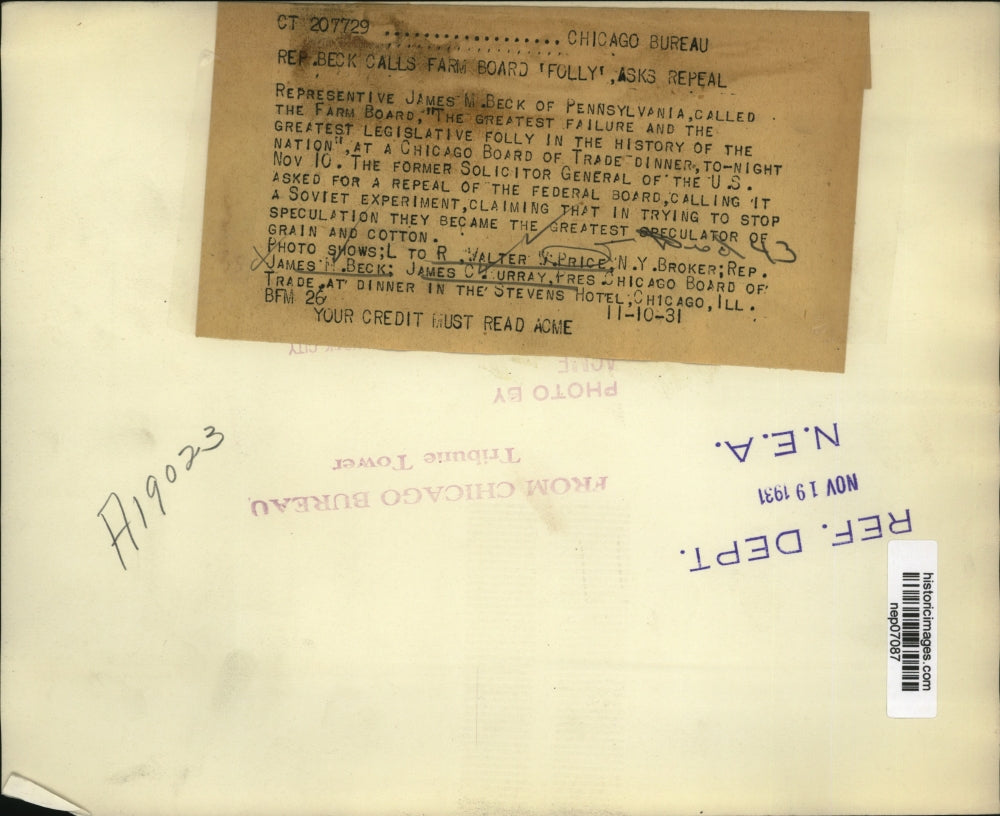 CT 207729 .................. CHICAGO BUREAU
REP.BECK CALLS FARM BOARD 'FOLLY',ASKS REPEAL
REPRESENTIVE JAMES M.BECK OF PENNSYLVANIA,CALLED
THE FARM BOARD,"THE GREATEST FAILURE AND THE
GREATEST LEGISLATIVE FOLLY IN THE HISTORY OF THE
NATION",AT A CHICAGO BOARD OF TRADE DINNER,TO-NIGHT
NOV 10. THE FORMER SOLICITOR GENERAL OF THE U.S.
ASKED FOR A REPEAL OF THE FEDERAL BOARD,CALLING IT
A SOVIET EXPERIMENT,CLAIMING THAT IN TRYING TO STOP
SPECULATION THEY BECAME THE GREATEST SPECULATOR OF
GRAIN AND COTTON.
PHOTO SHOWS;L TO R WALTER W.PRICE,N.Y.BROKER;REP.
JAMES M.BECK; JAMES C.MURRAY,PRES.CHICAGO BOARD OF
TRADE,AT DINNER IN THE STEVENS HOTEL,CHICAGO,ILL.
BFM 26 11-10-31
YOUR CREDIT MUST READ ACME
PHOTO BY
ACME
FROM CHICAGO BUREAU
Tribune Tower
A19023
REF. DEPT.
NOV 19 1931
N.E.A.
historicimages.com
nep07087